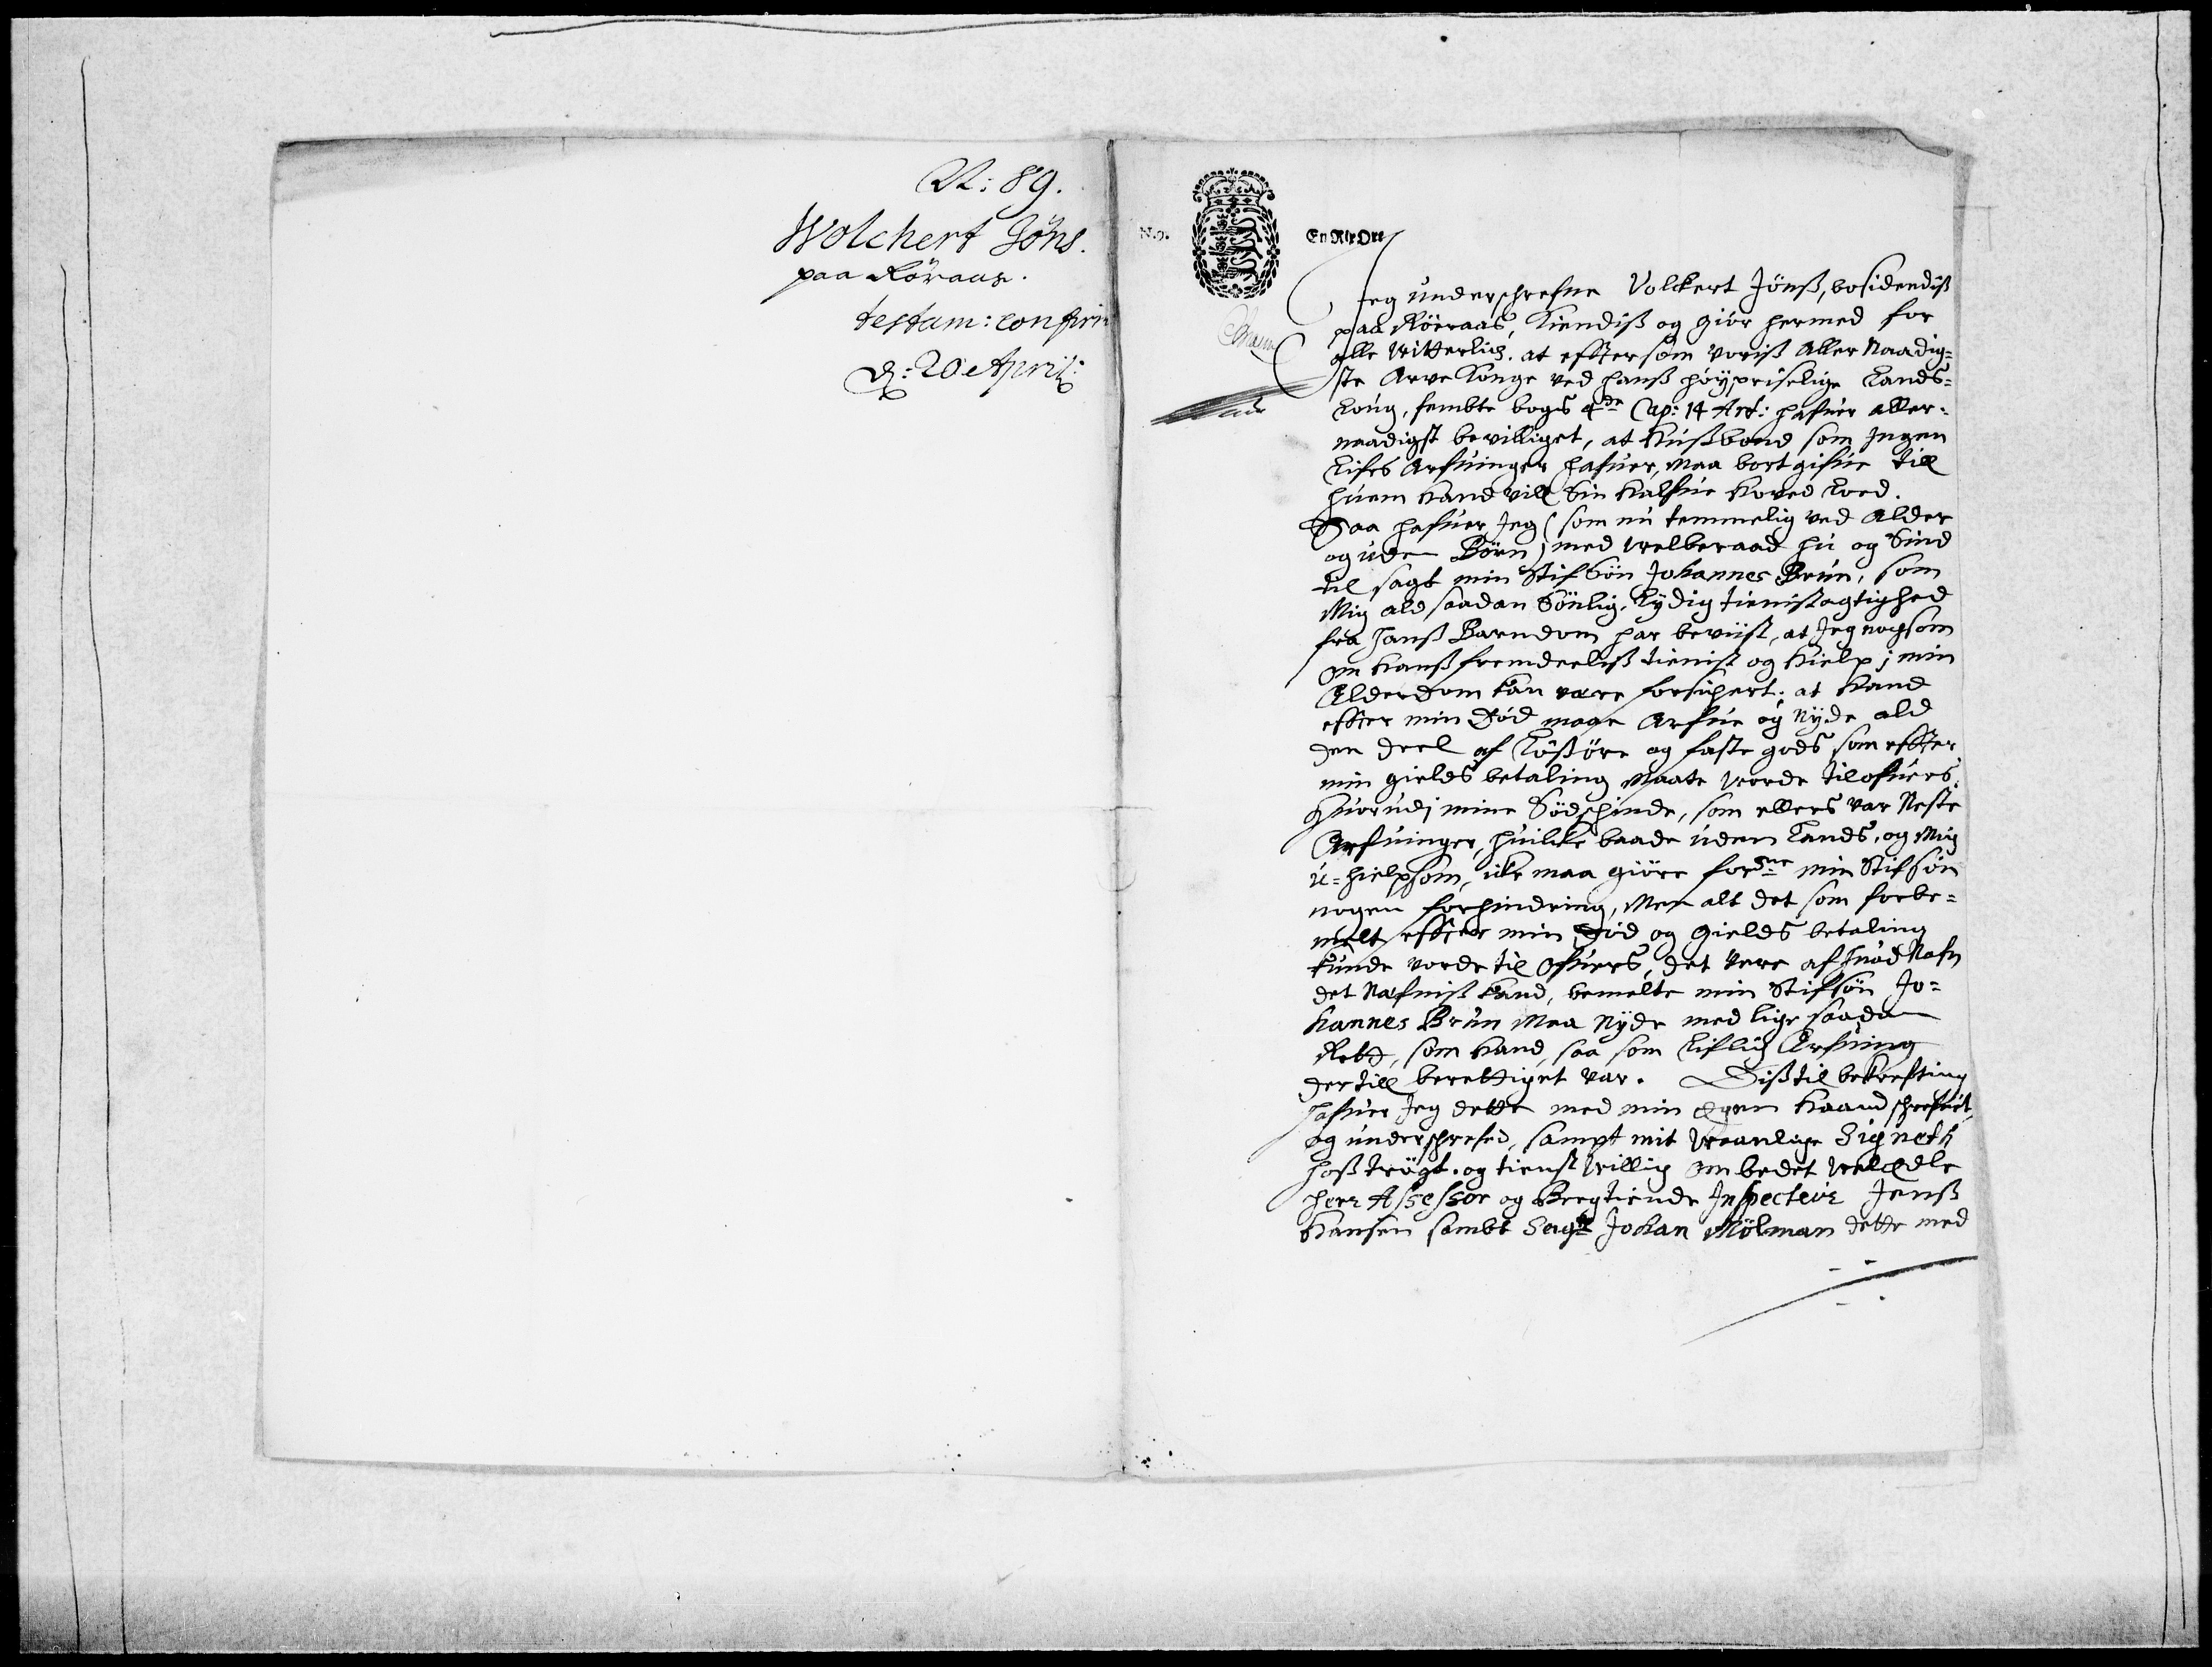 N: 89.
Wolchert Jöns.
paa Röraas.
testam: confirm
d: 20 April:
N.9.
En Rix Ort
Jeg underschrefne Volckert Jönß, bosidendiß
paa Röeraas, Kiendiß og giör hermed for
alle vitterlig. at eftersom voriß Aller Naadig=
ste Arve Konge ved hanß höypriselige Lands=
Loug, fembte bogs 4de Cap: 14 Art: hafuer aller=
naadigst bevilliget, at Hußbond som Ingen
Lifes Arfuinger hafuer, maa bort gifue till
huem hand vill Sin halfue hoved Loed.
Saa hafuer Jeg (som nu temmelig ved Alder
og uden Börn) med velberaad hu og Sind
til sagt min Stif Sön Johannes Brun, som
Mig ald saadan Sönlig, Lydig tienistagtighed
fra hanß Barndom har beviist, at Jeg nogsom
om hanß fremdeeliß tienist og hielp i min
Alderdom kan være forsichert; at hand
effter min Död maa Arfue og Nyde ald
den deel af Lößöre og faste gods som effter
min gields betaling Maate vorde til ofuers.
Huorudj mine Södschinde, som ellers var Neste
Arfuinger, huilke baade uden Lands, og Mig
u=hielpsom, icke maa giöre fordne min Stifsön
nogen forhindring, Men alt det som forbe=
melt effter min Död og Gields betaling
kunde vorde til Ofuers, det være af huad Nafn
det Nafnist kand, bemelte min Stifsön Jo=
hannes Brun Maa Nyde med lige saadan
Rett, som hand, saa som Liflig Arfuing
der till berettiget var. Diß til bekrefting
hafuer Jeg dette med min Egen haand schrefuet,
og underschrefed, sampt mit vaanlige Signeth
hoß trögt. og tienst villig om bedet velEdle
herr Assessor og Bergtiende Inspecteur Jenß
Hansen sambt Sagr Johan Mölman dette med